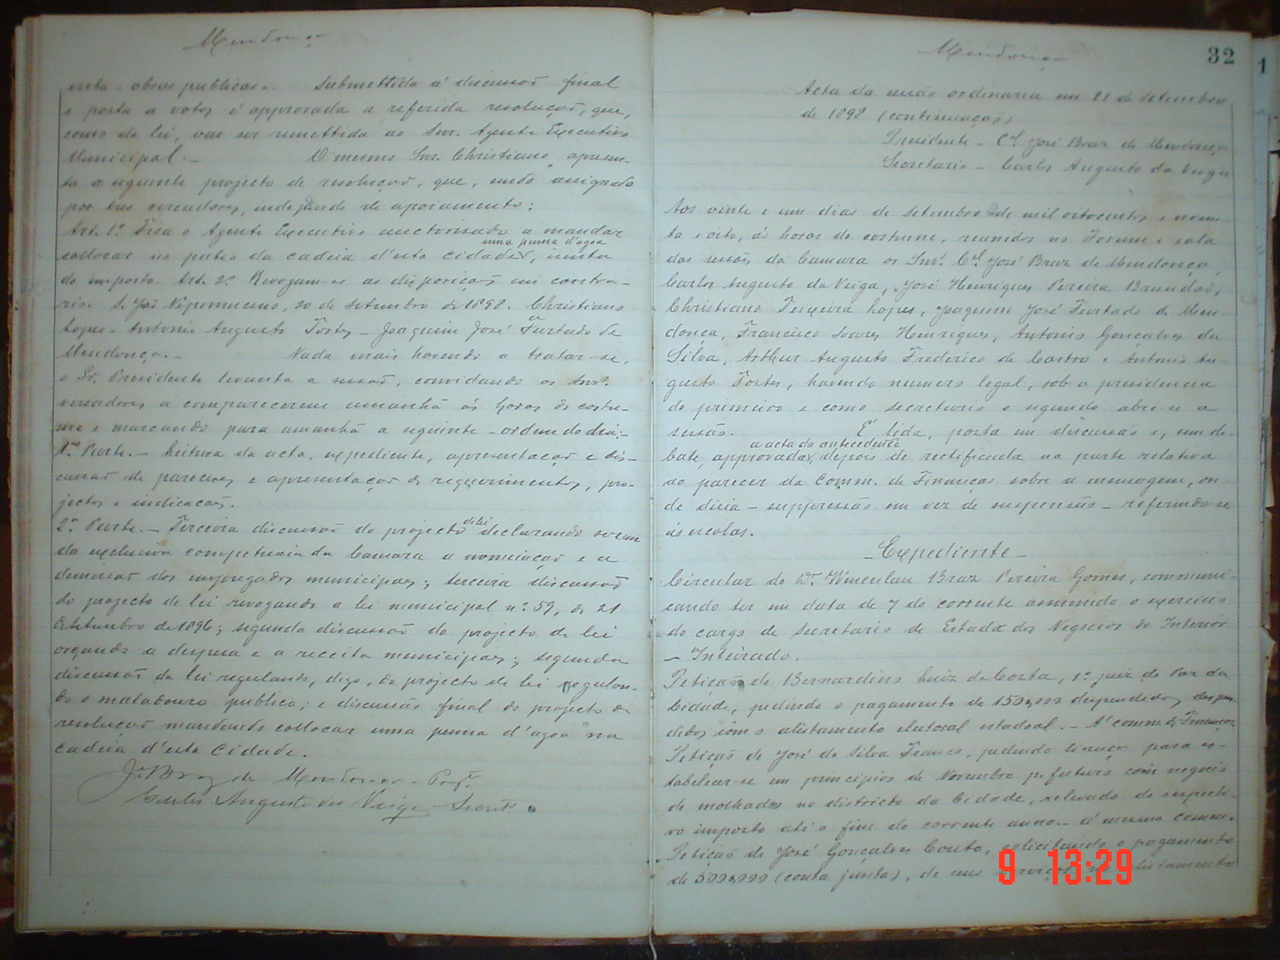 Mendonça
verba - obras publicas. Submettida á discussão final
e posta a votos é approvada a referida resolução, que,
como de lei, vae ser remettida ao Snr. Agente Executivo
Municipal. — O mesmo Snr. Christiano apresen-
ta a seguinte projecto de resolução, que, sendo assignado
por tres vereadores, independe de apoiamento:
Art. 1º Fica o Agente Executivo auctorisado a mandar
uma penna d'agua
collocar no pateo da cadeia d'esta cidade,
do imposto. Art. 2º Revogam-se as disposições em contra-
rio. S. João Nepomuceno, 20 de Setembro de 1898. Christiano
Lopes - Antonio Augusto Fortes - Joaquim José Furtado de
Mendonça. — Nada mais havendo a tratar-se,
o Sr. Presidente levanta a sessão, convidando os Snrs.
vereadores a comparecerem amanhã ás horas do costu-
me e marcando para amanhã a seguinte - ordem do dia:-
1ª Parte. - Leitura da acta, expediente, apresentação e dis-
cussão de pareceres e apresentação de requerimentos, pro-
jectos e indicações.
2ª Parte. - Terceira discussão do projecto de lei declarando serem
da exclusiva competencia da Camara a nomeação e a
demissão dos empregados municipaes; terceira discussão
do projecto de lei revogando a lei municipal nº 59, de 21
de Setembro de 1896; segunda discussão do projecto de lei
orçando a despesa e a receita municipaes; segunda
discussão da lei regulando, digo, do projecto de lei regulan-
do o matadouro publico; e discussão final do projecto de
resolução mandando collocar uma penna d'agoa na
cadeia d'esta Cidade.
Jé Braz de Mendonça - Presd.
Carlos Augusto da Veiga - Secretº
Mendonça
32
Acta da sessão ordinaria em 21 de Setembro
de 1898 (continuação)
Presidente - Cel José Braz de Mendonça
Secretario - Carlos Augusto da Veiga
Aos vinte e um dias de Setembro de mil oitocentos e noven-
ta e oito, ás horas do costume, reunidos no Forum e sala
das sessões da Camara os Snrs. Cel José Braz de Mendonça,
Carlos Augusto da Veiga, José Henriques Pereira Brandão,
Christiano Teixeira Lopes, Joaquim José Furtado de Men-
donça, Francisco Soares Henriques, Antonio Gonçalves da
Silva, Arthur Augusto Frederico de Castro e Antonio Au-
gusto Fortes, havendo numero legal, sob a presidencia
do primeiro e como secretario o segundo abre-se a
sessão. É lida, posta em discussão e, sem de-
a acta da antecedente
bate, approvada, depois de rectificada na parte relativa
ao parecer da Comm. de Finanças sobre a mensagem, on-
de dizia - suppressão em vez de suspensão - referindo-se
ás escolas.
- Expediente -
Circular do Dr. Wenceslau Braz Pereira Gomes, communi-
cando ter em data de 7 do corrente assumido o exercicio
do cargo de Secretario de Estado dos Negocios do Interior
- Inteirado.
Petição de Bernardino Luiz da Costa, 1º juiz de Paz da
Cidade, pedindo o pagamento de despendidos
com o alistamento eleitoral estadoal. - Á comm. de Finanças
Petição de José da Silva Franco, pedindo licença para es-
tabelecer-se em principios de Novembro pº futuro com negocio
de molhados no districto da Cidade, relevado do respecti-
vo imposto até o fim do corrente anno. - Á mesma comm.
Petição de José Gonçalves Couto, solicitando o pagamento
de (conta junta), de seus serviços
9 13:29